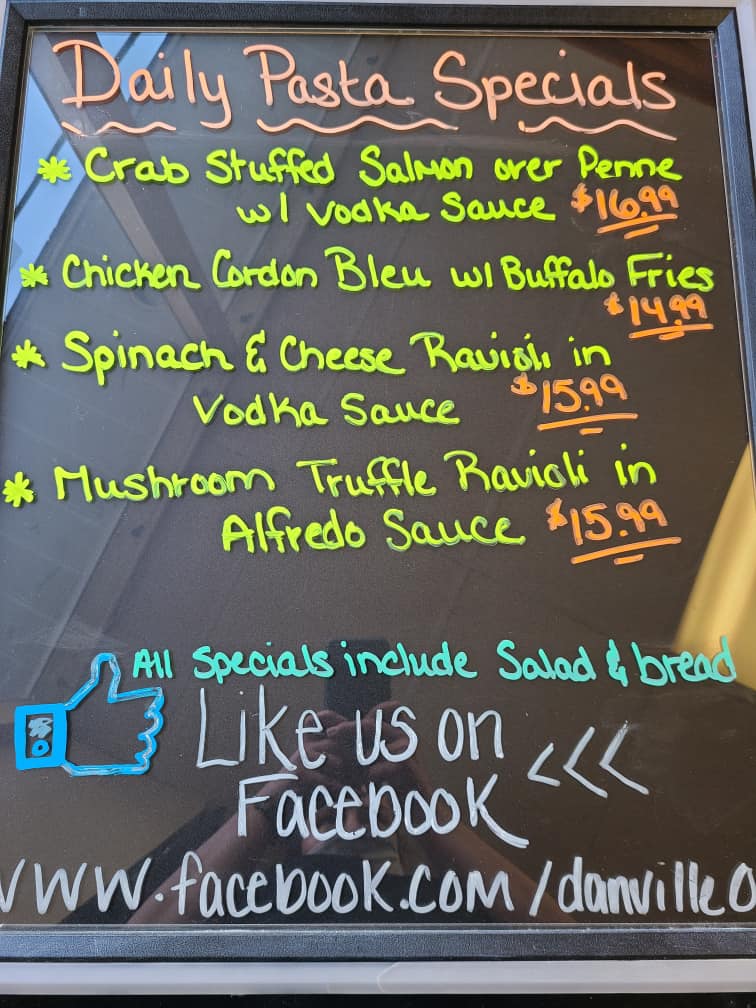 Daily Pasta Specials
* Crab Stuffed Salmon over Penne
w/ Vodka Sauce $16.99
* Chicken Cordon Bleu w/ Buffalo Fries
$14.99
* Spinach & Cheese Ravioli in
Vodka Sauce $15.99
* Mushroom Truffle Ravioli in
Alfredo Sauce $15.99
All Specials include Salad & bread
Like us on <<<
Facebook
www.facebook.com/danvilleo